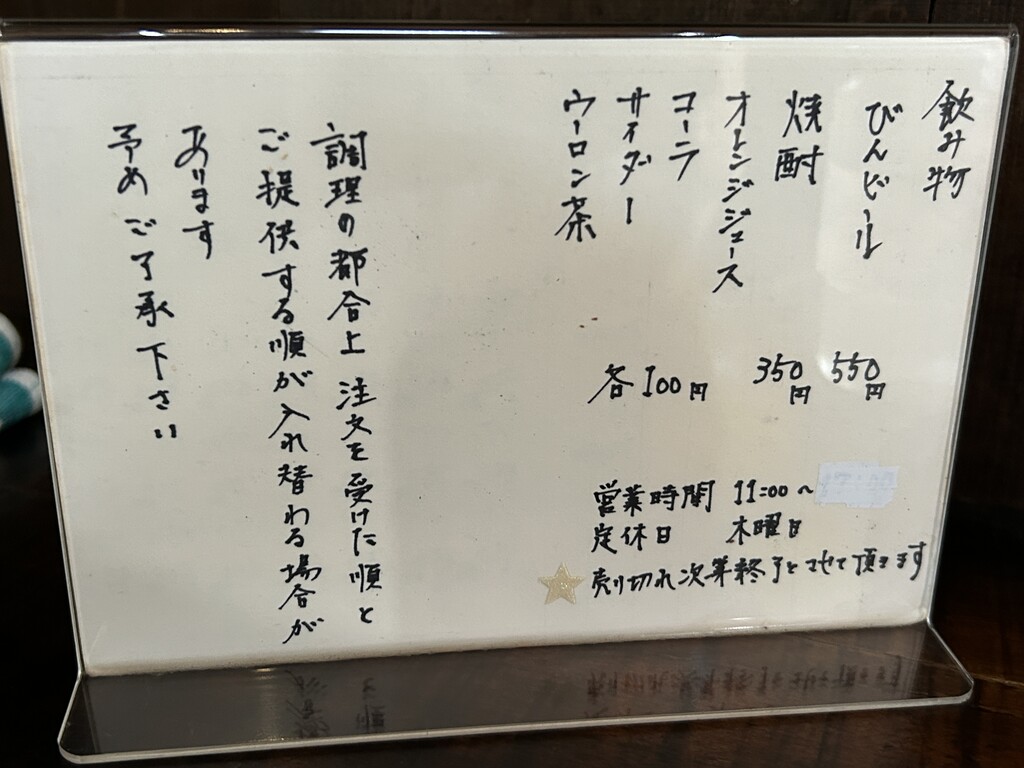 飲み物
びんビール 550円
焼酎 350円
オレンジジュース
コーラ
サイダー
ウーロン茶
各100円
営業時間 11:00～
定休日 木曜日
売り切れ次第終了とさせて頂きます
調理の都合上 注文を受けた順と
ご提供する順が入れ替わる場合が
あります
予めご了承下さい